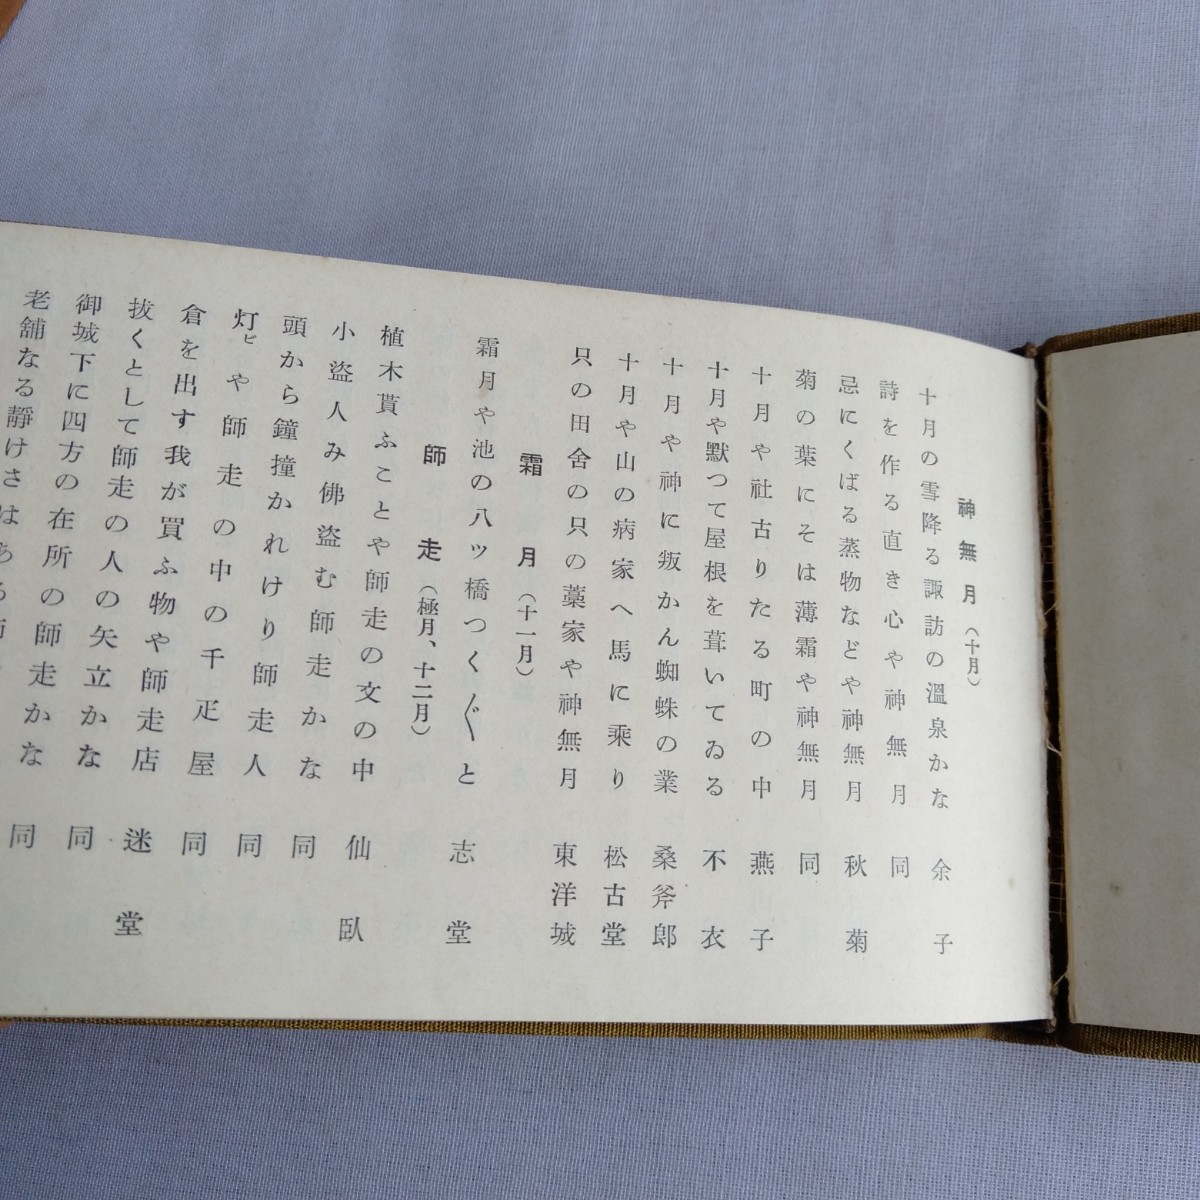 神無月（十月）
十月の雪降る諏訪の溫泉かな　余子
詩を作る直き心や神無月　同
忌にくばる蒸物などや神無月　秋菊
菊の葉にそは薄霜や神無月　同
十月や社古りたる町の中　燕子
十月や默つて屋根を葺いてゐる　不衣
十月や神に叛かん蜘蛛の業　桑斧郎
十月や山の病家へ馬に乘り　松古堂
只の田舍の只の藁家や神無月　東洋城
霜月（十一月）
霜月や池の八ッ橋つく〴〵と　志堂
師走（極月、十二月）
植木貰ふことや師走の文の中　仙臥
小盜人み佛盜む師走かな　同
頭から鐘撞かれけり師走人　同
灯ビや師走の中の千疋屋　同
倉を出す我が買ふ物や師走店　迷堂
拔くとして師走の人の矢立かな　同
御城下に四方の在所の師走かな　同
老舖なる靜けさはある師